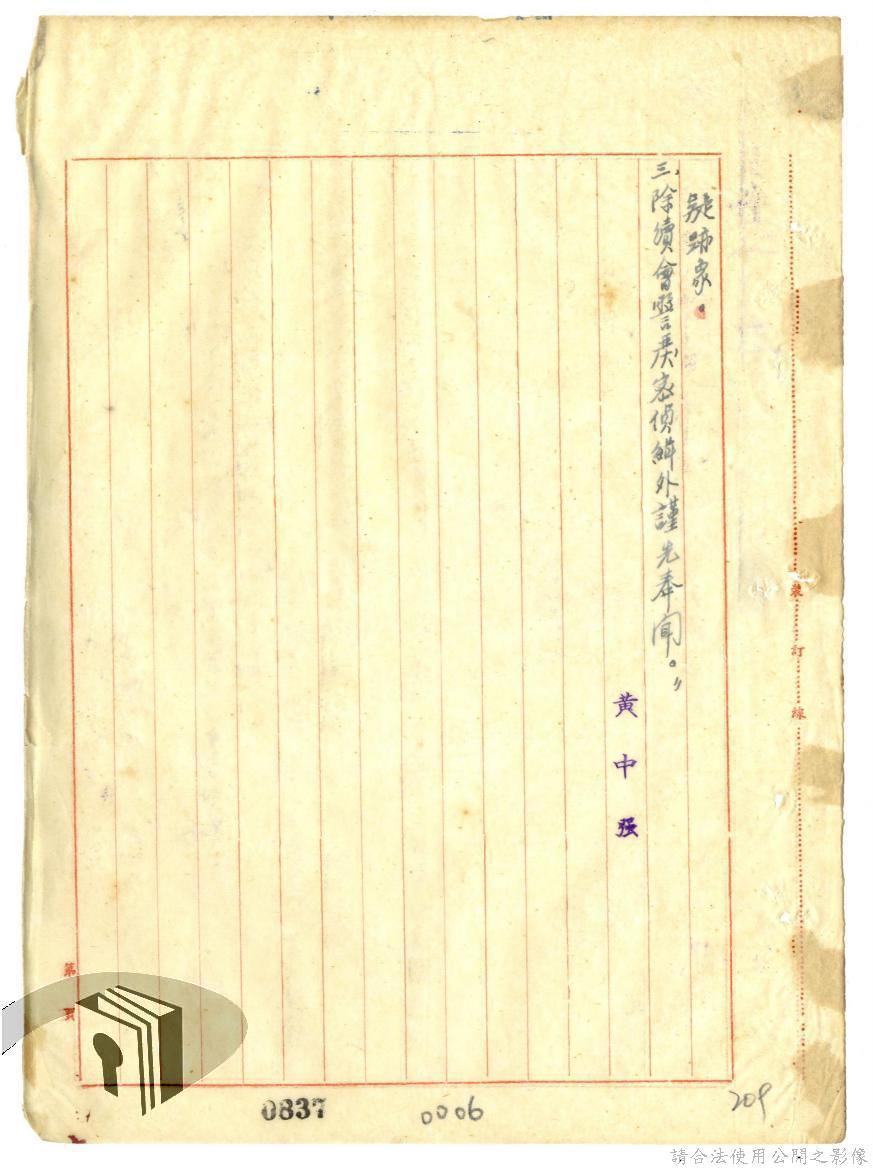 疑跡象。
三、除續會警嚴密偵緝外謹先奉聞。〃
黃中强
裝訂線
第 頁
0837
0006
209
請合法使用公開之影像